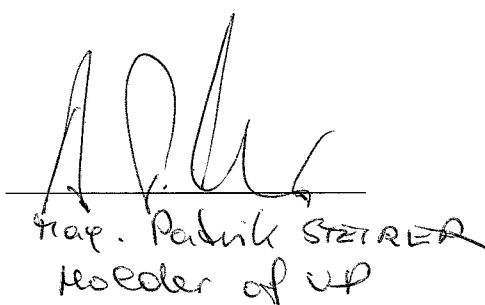 Mag. Patrik STEIRER
Holder of